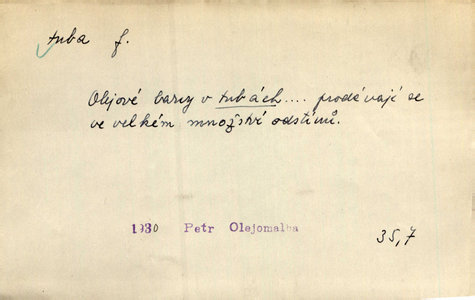 tuba f.
Olejové barvy v tubách.... prodávají se
ve velkém množství odstínů.
1930 Petr Olejomalba
35,7